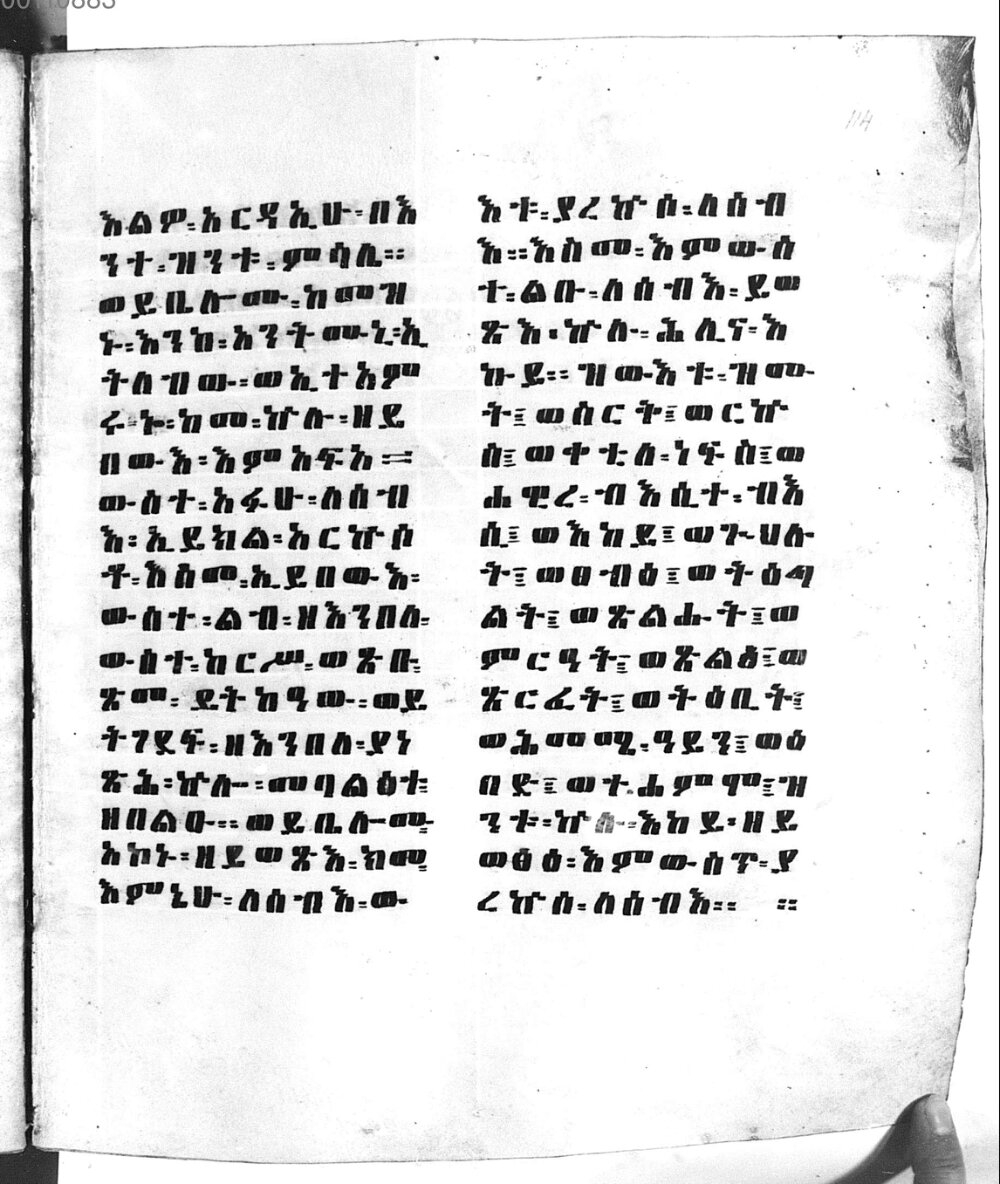 እልዎ፡አርዳኢሁ፡በእ
ንተ፡ዝንቱ፡ምሳሊ።
ወይቤሎሙ፡ከመዝ
ኑ፡እንከ፡አንትሙኒ፡ኢ
ትሰብዉ፡ወኢተአም
ሩ፡ኑ፡ከመ፡ኵሉ፡ዘይ
በውእ፡እምአፍአ
ውስተ፡አፉሁ፡ለሰብ
እ፡ኢይክል፡አርኵሶ
ቶ፡እስመ፡ኢይበውእ፡
ውስተ፡ልብ፡ዘእንበለ፡
ውስተ፡ከርሥ፡ወጽቡ፡
ጽመ፡ይትከዓው፡ወይ
ትገደፍ፡ዘእንበለ፡ያነ
ጽሕ፡ኵሎ፡መባልዕተ፡
ዘበልዑ። ወይቤሎሙ፡
አኮኑ፡ዘይወጽእ፡ክመ፡
እምኒሁ፡ለሰብእ፡ው
እቱ፡ያረኵሶ፡ለሰብ
እ።እስመ፡እምውስ
ተ፡ልቡ፡ለሰብእ፡ይወ
ጽእ፡ኵሉ፡ሕሊና፡እ
ኩይ። ዝውእቱ፡ዝሙ
ት፤ወሰርት፤ወርኵ
ስ፤ወቀቲለ፡ነፍስ፤ወ
ሐዊረ፡ብእሲተ፡ብእ
ሲ፤ወእከይ፤ወጕህሉ
ት፤ወፀብዕ፤ወትዕግ
ልት፤ወጽልሑት፤ወ
ምርዓት፤ወጽልዕ፤ወ
ጽርፈት፤ወትዕቢት፤
ወሕመሜ፡ዓይን፤ወዕ
በድ፤ወተሐምሞ፤ዝ
ንቱ፡ኵሉ፡እከይ፡ዘይ
ወፅዕ፡እምውስጥ፡ያ
ረኵሶ፡ለሰብእ። ።